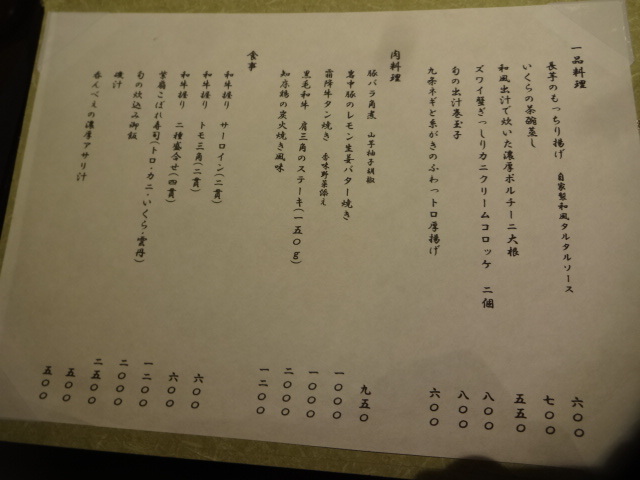 一品料理
長芋のもっちり揚げ 自家製和風タルタルソース 六〇〇
いくらの茶碗蒸し 七〇〇
和風出汁で炊いた濃厚ポルチーニ大根 五五〇
ズワイ蟹ぎっしりカニクリームコロッケ 二個 八〇〇
旬の出汁巻玉子 八〇〇
九条ネギと糸がきのふわっトロ厚揚げ 六〇〇
肉料理
豚バラ角煮 山芋柚子胡椒 九五〇
豚のレモン生姜バター焼き 一〇〇〇
霜降牛タン焼き 香味野菜添え 一〇〇〇
黒毛和牛 肩三角のステーキ(一五〇g) 二〇〇〇
知床鶏の炭火焼き風味 一二〇〇
食事
和牛握り サーロイン(二貫) 六〇〇
和牛握り トモ三角(二貫) 六〇〇
和牛握り 二種盛合せ(四貫) 一二〇〇
こぼれ寿司(トロ・カニ・いくら・雲丹) 二〇〇〇
旬の炊込み御飯 二五〇〇
磯汁 五〇〇
呑んべえの濃厚アサリ汁 五〇〇